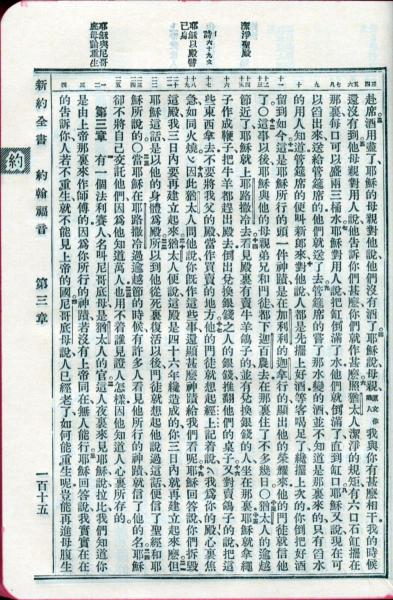 潔淨聖殿
詩六十九九
耶穌以殿譬
已身
耶穌與尼哥
底母論重生
赴席酒用盡了耶穌的母親對他說他們沒有酒了耶穌說母親原文作婦人我與你有甚麼相干我的時候
還沒有到他母親對用人說他告訴你們甚麼你們就作甚麼照猶太人潔淨的規矩有六口石缸擺在
那裏每口可以盛兩三桶水耶穌對用人說把缸倒滿了水他們就倒滿了直到缸口耶穌又說現在可
以舀出來送給管筵席的他們就送了去管筵席的嘗了那水變的酒並不知道是那裏來的只有舀水
的用人知道管筵席的便叫新郎來對他說人都是先擺上好酒等客喝足了纔擺上次的你倒把好酒
留到如今這是耶穌所行的頭一件神蹟是在加利利的迦拿行的顯出他的榮耀來他的門徒就信他
了〇這事以後耶穌與他的母親弟兄和門徒都下迦百農去在那裏住了不多幾日〇猶太人的逾越
節近了耶穌就上耶路撒冷去看見殿裏有賣牛羊鴿子的並有兌換銀錢的人坐在那裏耶穌就拿繩
子作成鞭子把牛羊都趕出殿去倒出兌換銀錢之人的銀錢推翻他們的桌子又對賣鴿子的說把這
些東西拿去不要將我父的殿當作買賣的地方他的門徒就想起經上記着說我爲你的殿心裏焦
急如同火燒因此猶太人問他說你既作這些事還顯甚麼神蹟給我們看耶穌回答說你們拆毀
這殿我三日內要再建立起來猶太人便說這殿是四十六年纔造成的你三日內就再建立起來麼但
耶穌這話是以他的身體爲殿所以到他從死裏復活以後門徒就想起他說過這話便信了聖經和耶
穌所說的〇當耶穌在耶路撒冷過逾越節的時候有許多人看見他所行的神蹟就信了他的名耶穌
卻不將自己交託他們因爲他知道萬人也用不着誰見證人怎樣因他知道人心裏所存的
第三章 有一個法利賽人名叫尼哥底母是猶太人的官這人夜裏來見耶穌說拉比我們知道你
是由上帝那裏來作師傅的因爲你所行的神蹟若沒有上帝同在無人能行耶穌回答說我實實在在
的告訴你人若不重生就不能見上帝的國尼哥底母說人已經老了如何能重生呢豈能再進母腹生
新約全書 約翰福音 第三章 一百十五
約